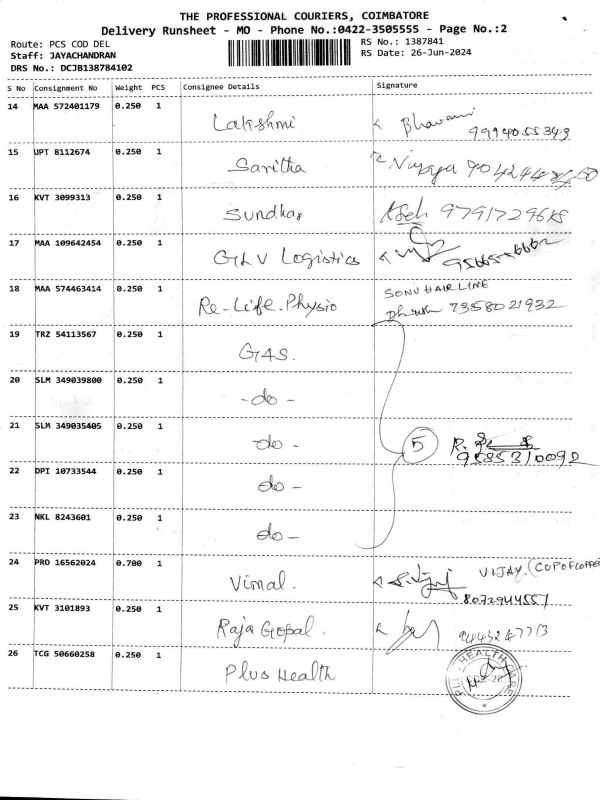 THE PROFESSIONAL COURIERS, COIMBATORE
Delivery Runsheet - MO - Phone No.:0422-3505555 - Page No.:2
Route: PCS COD DEL
RS No.: 1387841
Staff: JAYACHANDRAN
RS Date: 26-Jun-2024
DRS No.: DCJB138784102
S No Consignment No Weight PCS Consignee Details Signature
14 MAA 572401179 0.250 1 Lakshmi Bhavani 9994055349
15 UPT 8112674 0.250 1 Saritha
16 KVT 3099313 0.250 1 Sundhar
17 MAA 109642454 0.250 1 GLV Logistics
18 MAA 574463414 0.250 1 Re-Life.Physio SONU HAIR LINE 7358021932
19 TRZ 54113567 0.250 1 G4S.
20 SLM 349039800 0.250 1 -do-
21 SLM 349035405 0.250 1 -do- 5 9585310092
22 DPI 10733544 0.250 1 -do-
23 NKL 8243601 0.250 1 -do-
24 PRO 16562024 0.700 1 Vimal. VIJAY. (CUPOFCOFFEE
8072944557
25 KVT 3101893 0.250 1 Raja Gopal.
26 TCG 50660258 0.250 1 Plus Health HEALTH CARE